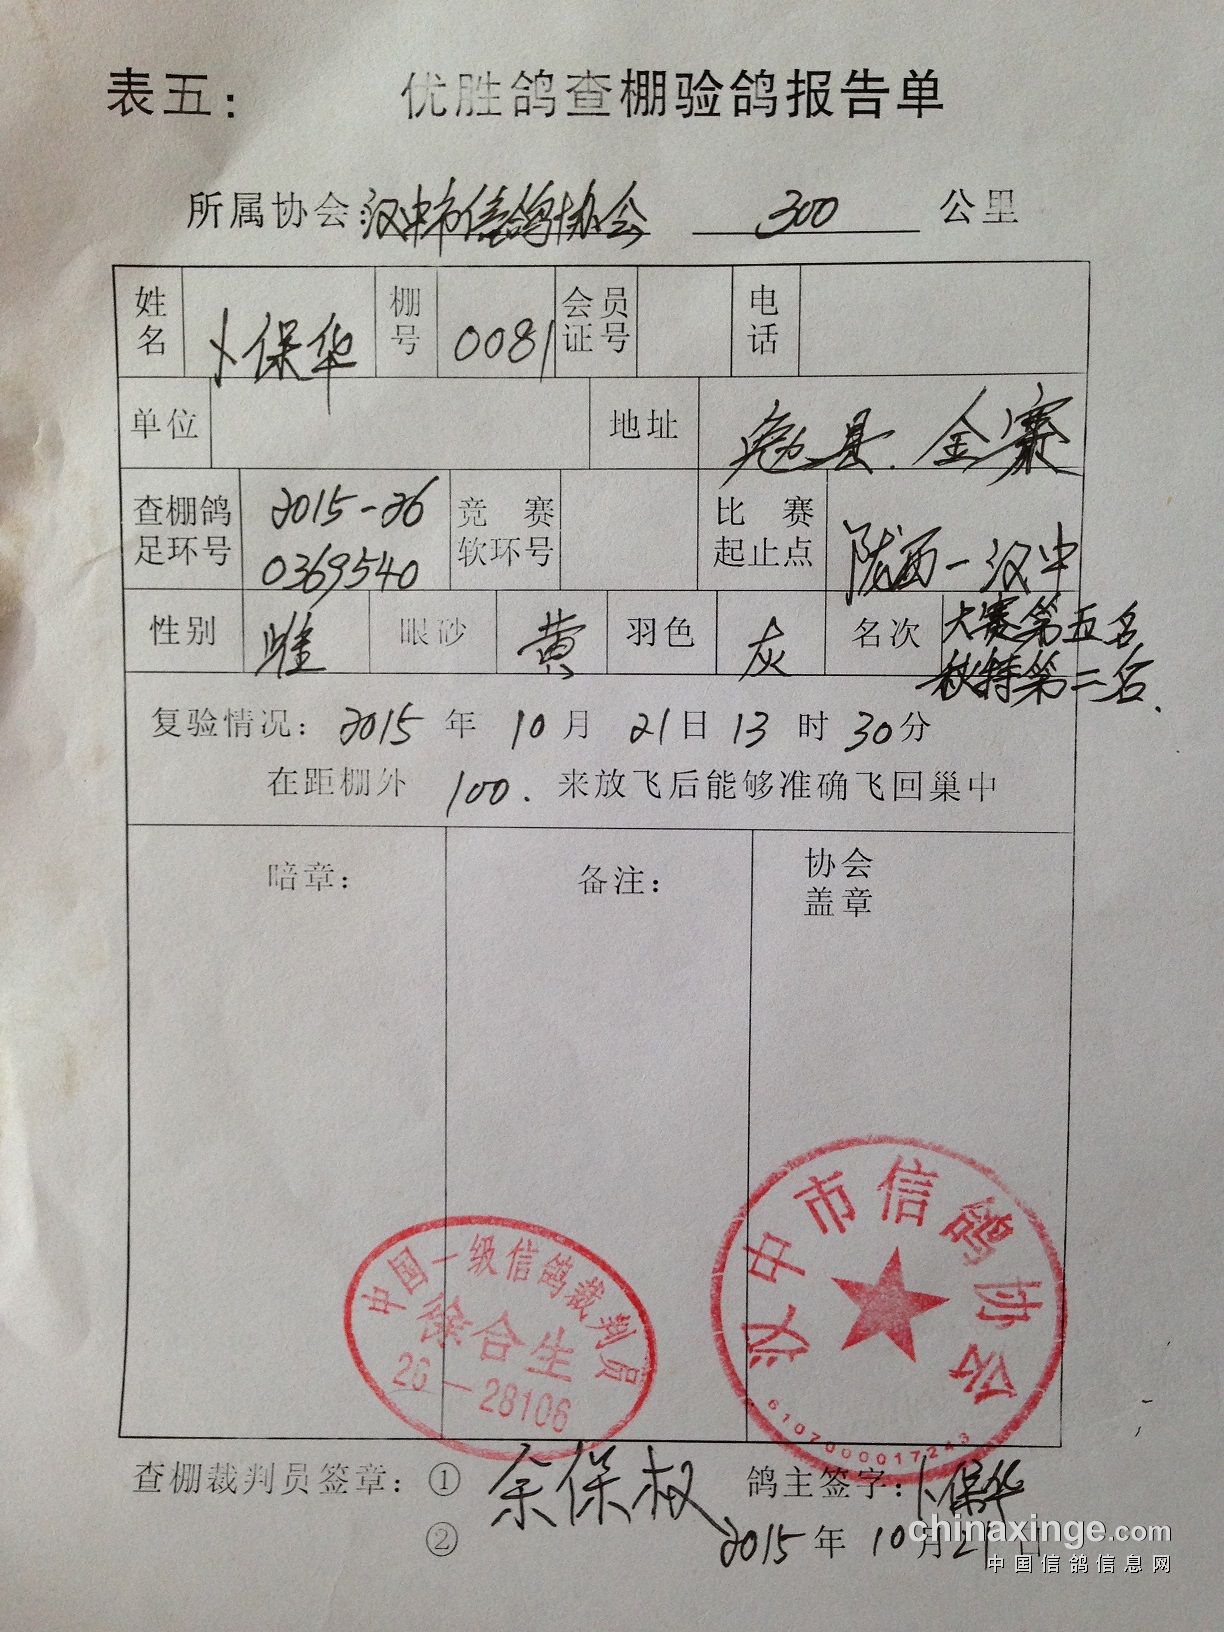 表五： 优胜鸽查棚验鸽报告单
所属协会：汉中市信鸽协会 300 公里
姓名 卜保华 棚号 0081 会员证号 电话
单位 地址 勉县.金寨
查棚鸽足环号 2015-26 0369540 竞赛软环号 比赛起止点 陇西-汉中
性别 雌 眼砂 黄 羽色 灰 名次 大赛第五名 秋特第二名.
复验情况：2015年10月21日13时30分
在距棚外 100. 来放飞后能够准确飞回巢中
暗章： 备注： 协会盖章
中国一级信鸽裁判员
徐合生
26-28106
汉中市信鸽协会
6107000017243
查棚裁判员签章：① 余保权 鸽主签字：卜保华
② 2015年10月21日
chinaxinge.com
中国信鸽信息网